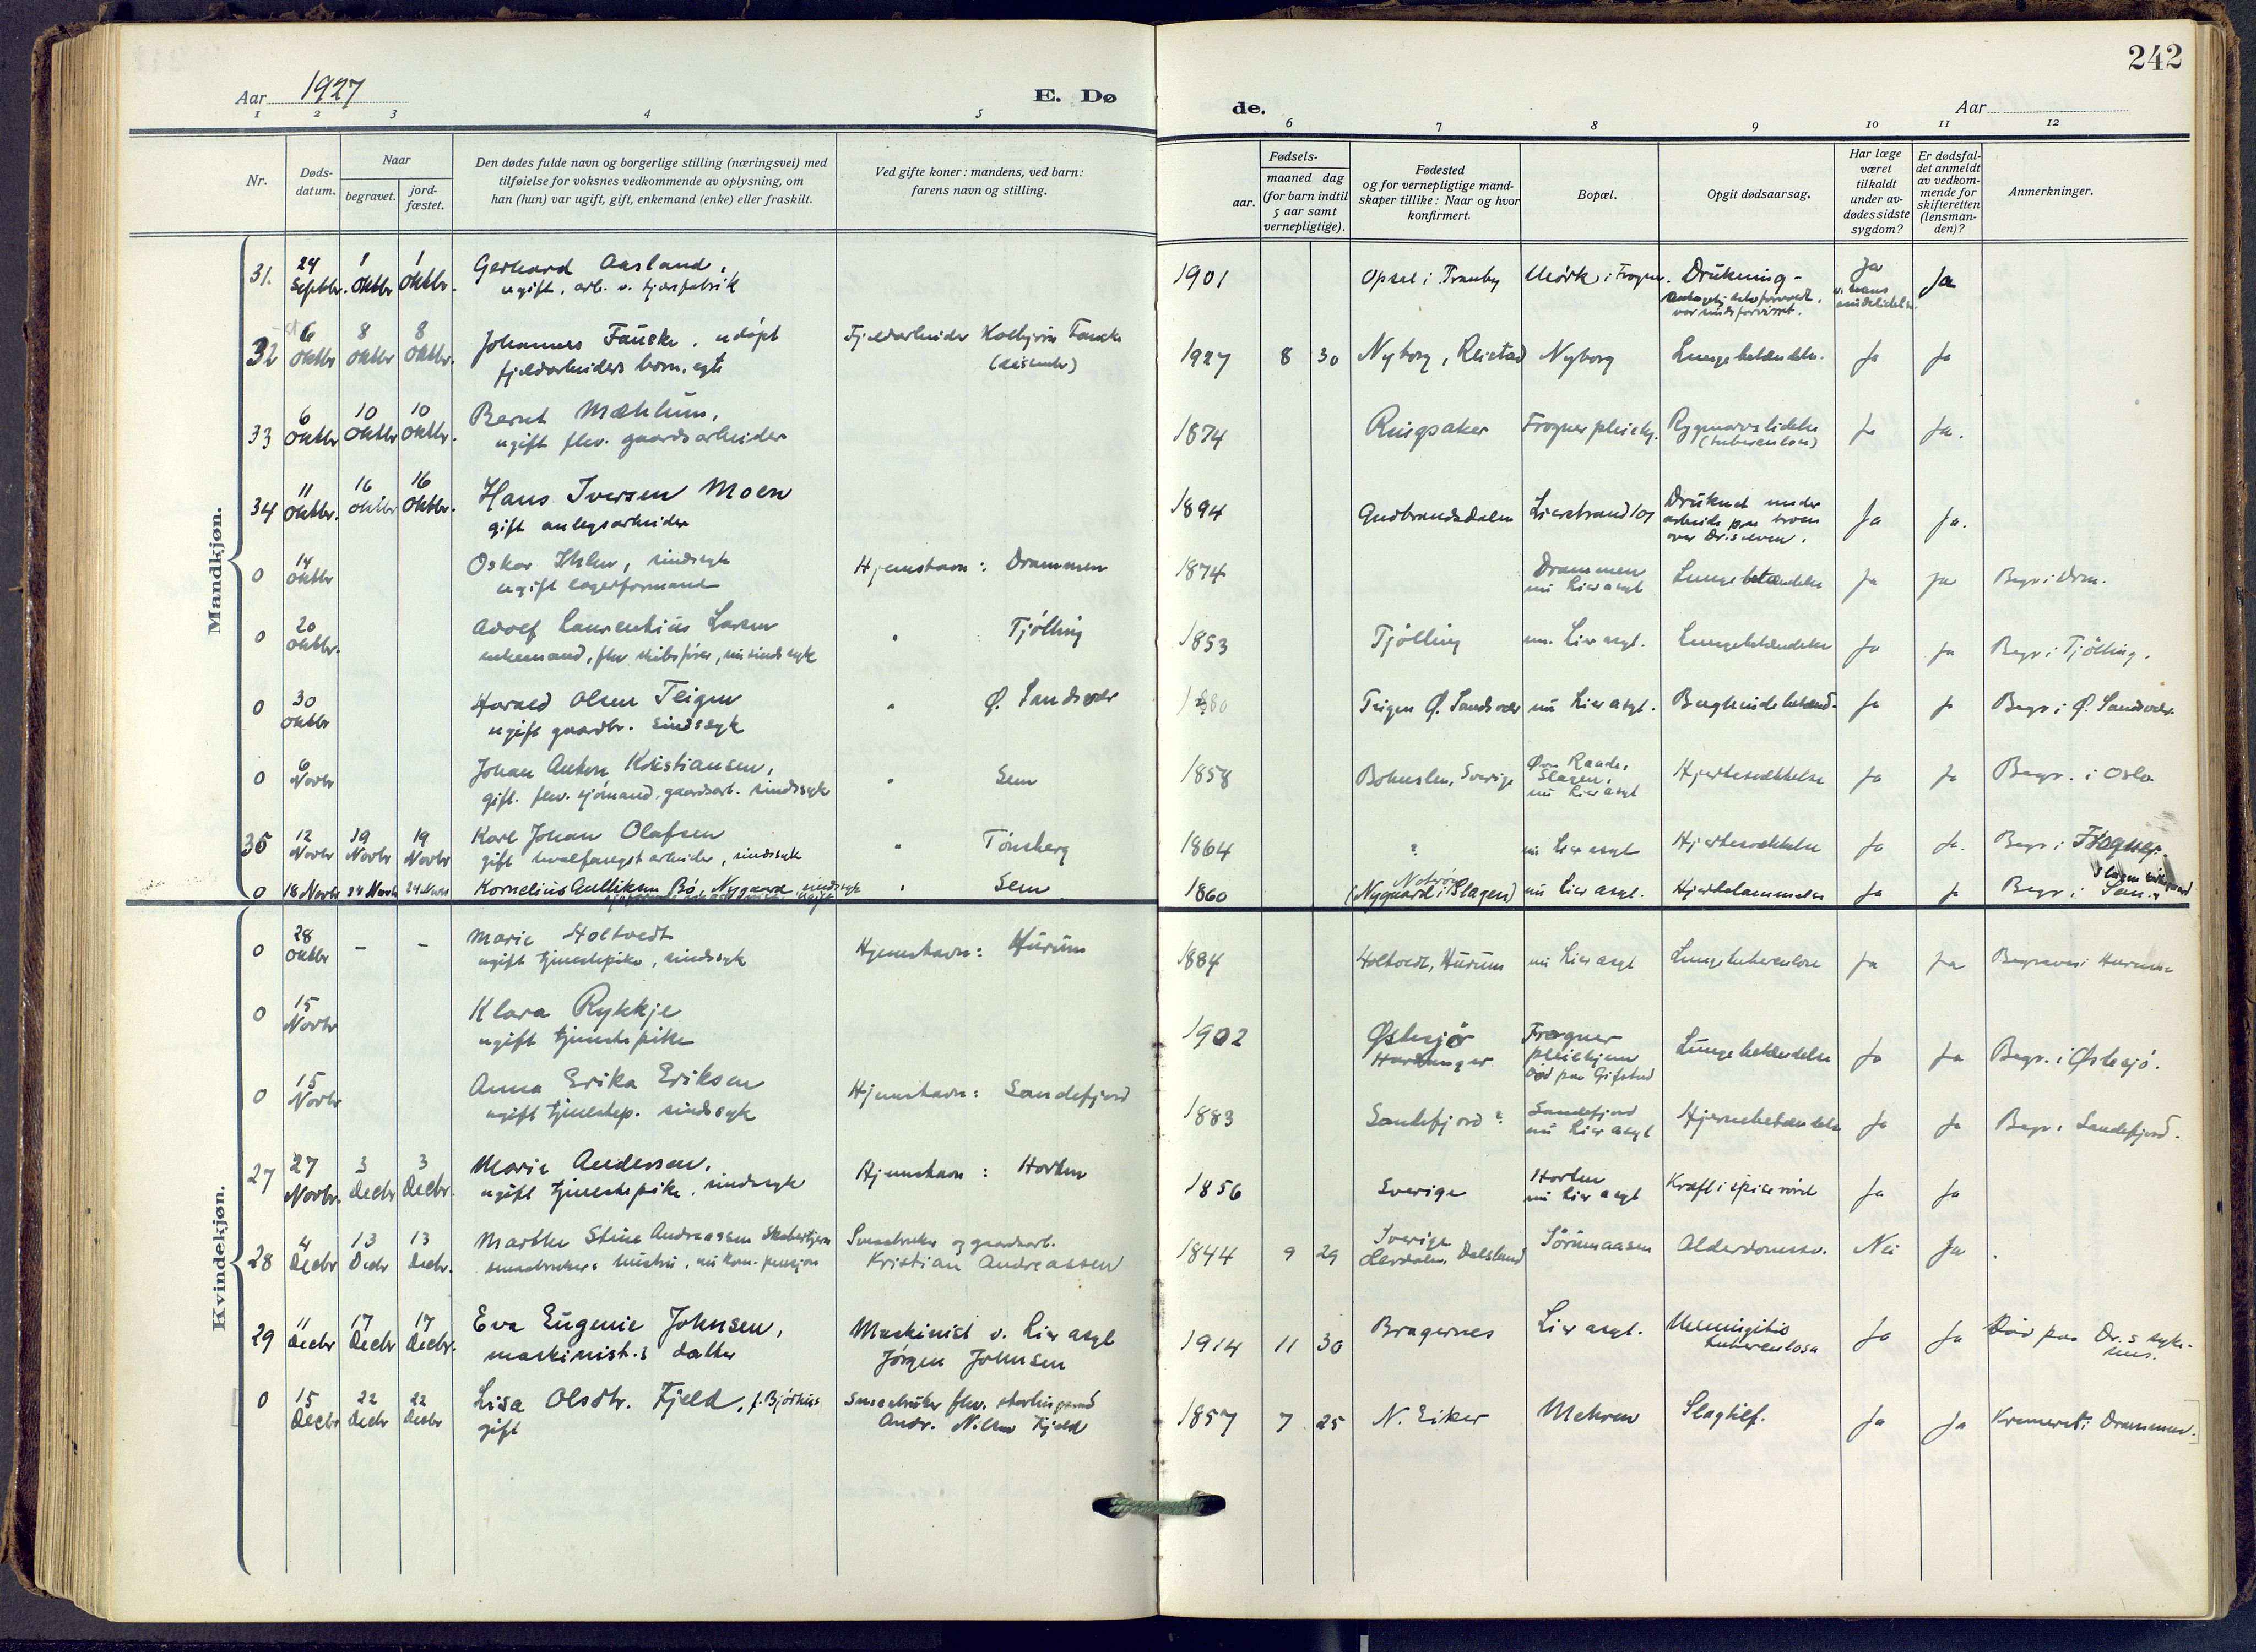 242
Aar 1927
E. Dø
de.
Aar
1 2 3 4 5 6 7 8 9 10 11 12
Nr.
Døds-
datum.
Naar
begravet.
jord-
fæstet.
Den dødes fulde navn og borgerlige stilling (næringsvei) med
tilføielse for voksnes vedkommende av oplysning, om
han (hun) var ugift, gift, enkemand (enke) eller fraskilt.
Ved gifte koner: mandens, ved barn:
farens navn og stilling.
Fødsels-
aar.
maaned dag
(for barn indtil
5 aar samt
vernepligtige).
Fødested
og for vernepligtige mand-
skaper tillike: Naar og hvor
konfirmert.
Bopæl.
Opgit dødsaarsag.
Har læge
været
tilkaldt
under av-
dødes sidste
sygdom?
Er dødsfal-
det anmeldt
av vedkom-
mende for
skifteretten
(lensman-
den)?
Anmerkninger.
Mandkjøn.
31. 24 Septbr. 1 Oktbr 1 Oktbr. Gerhard Aasland, 1901 Opsal i Tranby Mörk i Frogner. Drukning - Ja Ja
ugift, arb. v. tjærefabrik
var sindsforvirret.
32 6 Oktbr 8 Oktbr 8 Oktbr. Johannes Fauske, udöpt Fjeldarbeider Kolbjörn Fauske 1927 8 30 Nyborg, Reistad Nyborg Lungebetændelse. Ja Ja
fjeldarbeiders barn, egte (dissenter)
33 6 Oktbr 10 Oktbr 10 Oktbr. Bernt Mæhlum, 1874 Ringsaker Frogner pleiehj. Rygmarvslidelse Ja Ja.
ugift fhv. gaardsarbeider (tuberculose)
34 11 Oktbr. 16 Oktbr 16 Oktbr. Hans Iversen Moen 1894 Gudbrandsdalen Lierstrand Druknet under Ja Ja.
gift anlegsarbeider arbeide paa broen
over Dr.selven.
0 14 Oktbr Oskar, sindssyk Hjemstavn: Drammen 1874 Drammen Lungebetændelse Ja Ja Begr. i Drm.
ugift lagerformand nu Lier asyl
0 20 Oktbr. Adolf Laurentius Larsen " Tjölling 1853 Tjölling nu. Lier asyl. Lungebetændelse Ja Ja Begr. i Tjölling.
enkemand, fhv. skibsförer, nu sindssyk
0 30 Oktbr Harald Olsen Teigen " Ø. Sandsvær 1880 Teigen Ø. Sandsvær nu Lier asyl. Bughindebetænd. Ja Ja Begr. i Ø. Sandsvær.
ugift gaardbr. sindssyk
0 6 Novbr Johan Anton Kristiansen, " Sem 1858 Bohuslen, Sverige Slagen, Hjertesvækkelse Ja Ja Begr. i Oslo
gift. fhv. sjömand, gaardsarb. sindssyk nu Lier asyl
35 12 Novbr 19 Novbr 19 Novbr Karl Johan Olafsen " Tönsberg 1864 ? nu Lier asyl Hjertesvækkelse Ja Ja. Begr. i Frogner.
gift hvalfangstarbeider, sindssyk
0 18 Novbr 24 Novbr 24 Novbr Kornelius Gulliksen Bö, Nygaard, sindssyk " Sem 1860 (Nygaard i Slagen) nu Lier asyl. Hjertelammelse Ja Ja Begr. i
Kvindekjøn.
0 28 Oktbr - - Marie Holtvedt Hjemstavn: Hurum 1884 Holtvedt, Hurum nu Lier asyl Lungetuberculose Ja Ja Begraves i Hurum
ugift tjenestepike, sindssyk
0 15 Novbr Klara Rykkje 1902 Østesjö Frogner Lungebetændelse Ja Ja Begr. i Østesjö.
ugift tjenestepike Hardanger pleiehjem
Död paa Gifstad
0 15 Novbr Anna Erika Eriksen Hjemstavn: Sandefjord 1883 Sandefjord ? Sandefjord Hjernebetændelse Ja Ja Begr. i Sandefjord.
ugift tjenestep. sindssyk nu Lier asyl
27 27 Novbr. 3 Decbr 3 Decbr. Marie Andersen, Hjemstavn: Horten 1856 Sverige Horten Kræft i spiserörd Ja Ja
ugift tjenestepike, sindssyk nu Lier asyl
28 4 Decbr 13 Decbr 13 Decbr. Marthe Stine Andreassen Smaabruker og gaardsarb. 1844 9 29 Sverige Sörumaasen Alderdomssv. Nei Ja
smaabrukers hustru, nu kom. pensjon Kristian Andreassen Dalsland
29 11 Decbr 17 Decbr 17 Decbr. Eva Eugenie Johnsen, Maskinist v. Lier asyl 1914 11 30 Bragernes Lier asyl. Meningitis Ja Ja Död paa Dr.s syke-
maskinist.s datter Jörgen Johnsen tuberculosa hus.
0 15 Decbr 22 Decbr 22 Decbr Lisa Olsdtr. Fjeld, f. Björkhus Smaabruker fhv. 1857 7 25 N. Eiker Mehren Slagtilf. Ja Ja Kremert i Drammen.
gift Andr. Nilsen Fjeld